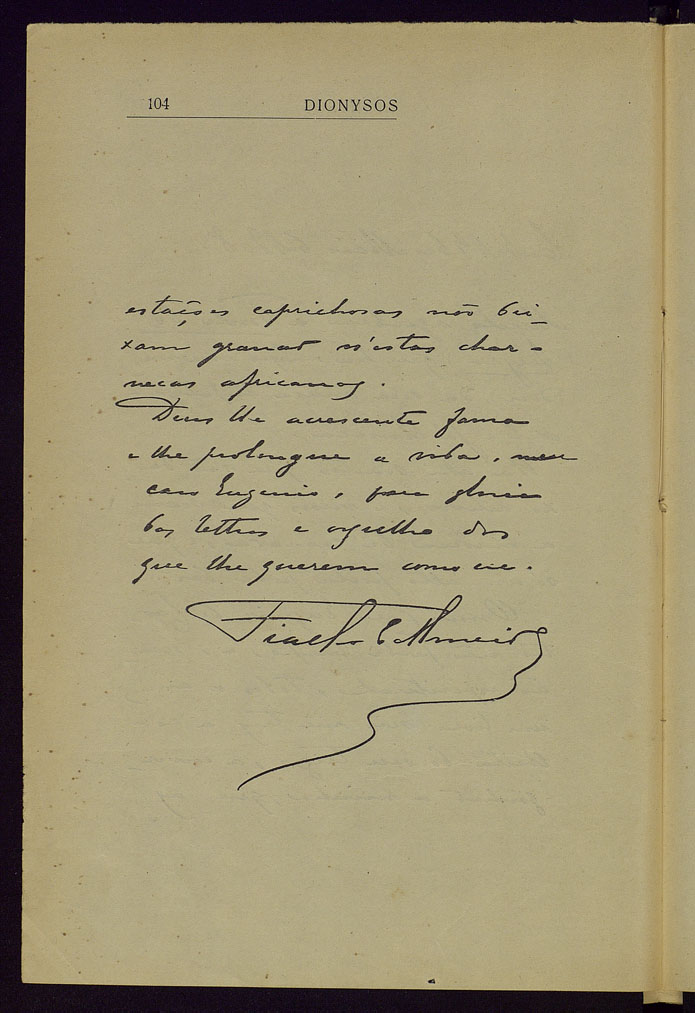 104 DIONYSOS
estações caprichosas nos dei-
xam granar n'estas char-
necas africanas.
Deus lhe acrescente fama
e lhe prolongue a vida, meu
caro Eugenio, para gloria
das lettras e orgulho dos
que lhe querem como eu.
Fialho d'Almeida